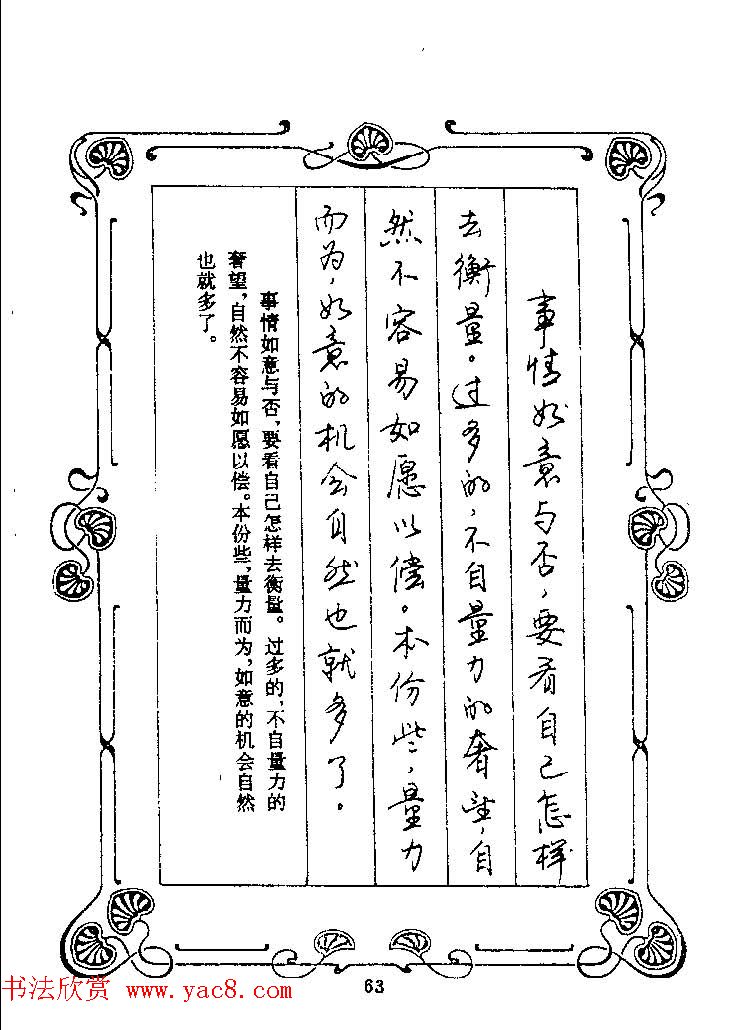 事情如意与否，要看自己怎样
去衡量。过多的，不自量力的奢望，自
然不容易如愿以偿。本份些，量力
而为，如意的机会自然也就多了。
事情如意与否，要看自己怎样去衡量。过多的，不自量力的
奢望，自然不容易如愿以偿。本份些，量力而为，如意的机会自然
也就多了。
63
书法欣赏 www.yac8.com